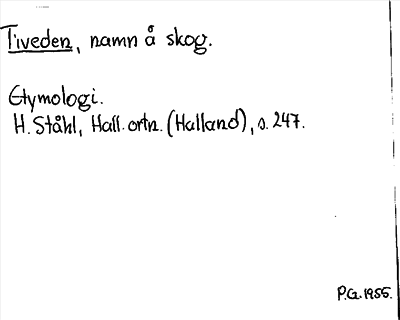 Tiveden, namn å skog.
Etymologi.
H. Ståhl, Hall. ortn. (Halland), s. 247.
P.G. 1955.